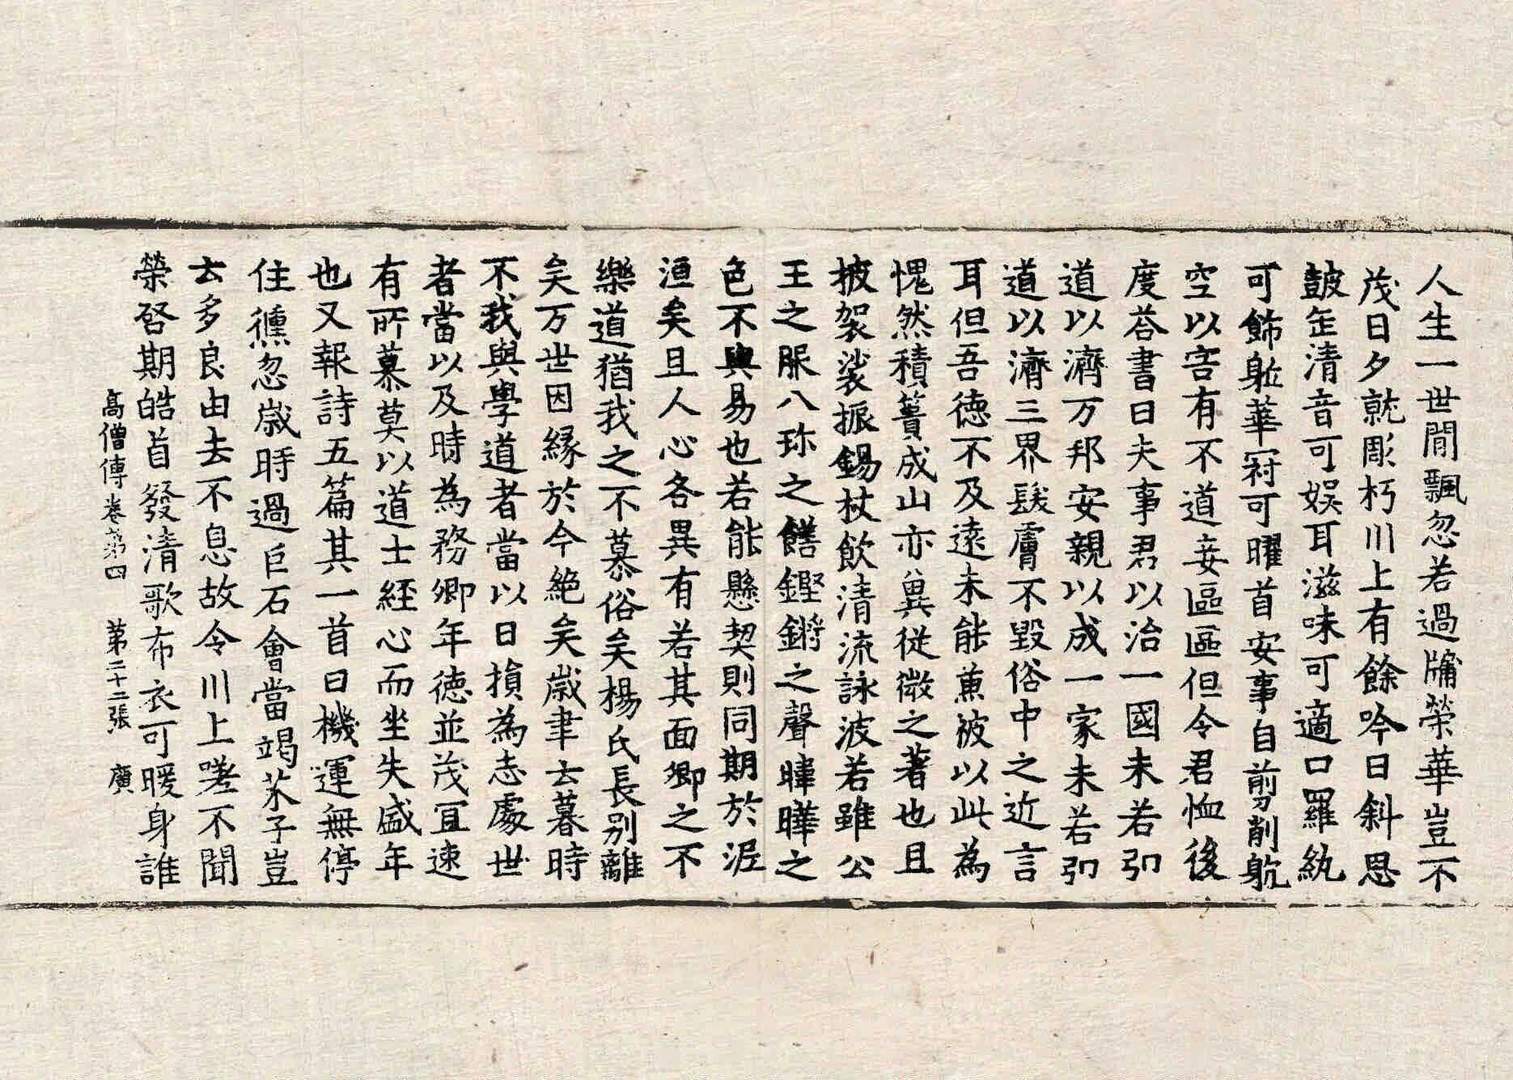 人生一世閒飄忽若過牖榮華豈不
茂日夕就彫朽川上有餘吟日斜思
皷缶清音可娛耳滋味可適口羅紈
可飾軀華冠可曜首安事自剪削躭
空以害有不道妾區區但令君恤後
度荅書曰夫事君以治一國未若弘
道以濟万邦安親以成一家未若弘
道以濟三界髮膚不毀俗中之近言
耳但吾德不及遠未能蕙被以此為
愧然積簣成山亦兾從微之著也且
披袈裟振錫杖飲清流詠波若雖公
王之服八珎之饍鏗鏘之聲暐曄之
色不與易也若能懸契則同期於泥
洹矣且人心各異有若其面卿之不
樂道猶我之不慕俗矣楊氏長別離
矣万世因緣於今絶矣歲聿云暮時
不我與學道者當以日損為志處世
者當以及時為務卿年德並茂冝速
有所慕莫以道士經心而坐失盛年
也又報詩五篇其一首曰機運無停
住倐忽歲時過巨石會當竭芥子豈
云多良由去不息故令川上嗟不聞
榮啓期皓首發清歌布衣可暖身誰
高僧傳卷第四 第二十二張 廣